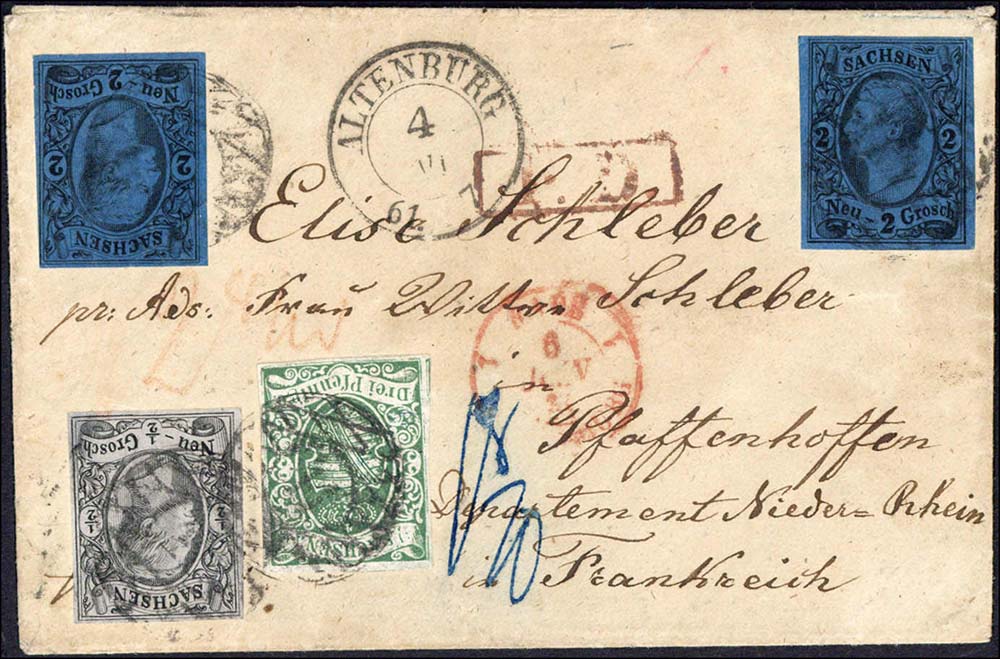 Neu - 2 Grosch
2 2
SACHSEN
ALTENBURG
4
61
P.D
SACHSEN
2 2
Neu - 2 Grosch
Elise Schleber
pr: Ads: Frau Wittwe Schleber
6
in
Pfaffenhoffen
Departement Nieder=Rhein
in Frankreich
Drei Pfennige
SACHSEN
Neu - ½ Grosch
½ ½
SACHSEN